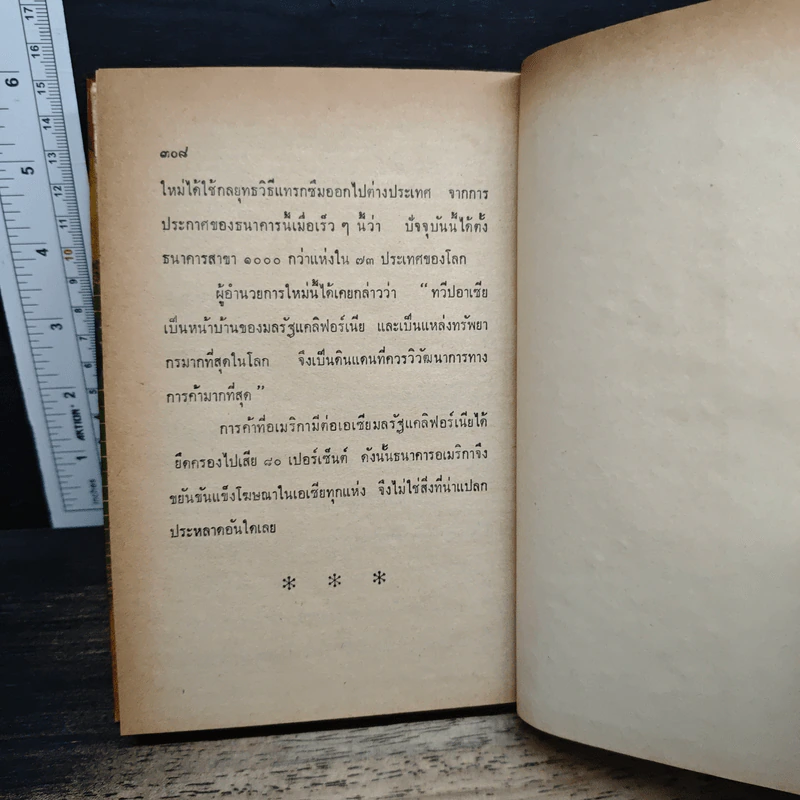 ๓๐๘
ใหม่ได้ใช้กลยุทธวิธีแทรกซึมออกไปต่างประเทศ จากการ
ประกาศของธนาคารนี้เมื่อเร็ว ๆ นี้ว่า ปัจจุบันนี้ได้ตั้ง
ธนาคารสาขา ๑๐๐๐ กว่าแห่งใน ๗๓ ประเทศของโลก
ผู้อำนวยการใหม่นี้ได้เคยกล่าวว่า “ทวีปอาเซีย
เป็นหน้าบ้านของมลรัฐแคลิฟอร์เนีย และเป็นแหล่งทรัพยา
กรมากที่สุดในโลก จึงเป็นดินแดนที่ควรวิวัฒนาการทาง
การค้ามากที่สุด”
การค้าที่อเมริกามีต่อเอเซียมลรัฐแคลิฟอร์เนียได้
ยึดครองไปเสีย ๘๐ เปอร์เซ็นต์ ดังนั้นธนาคารอเมริกาจึง
ขยันขันแข็งโฆษณาในเอเซียทุกแห่ง จึงไม่ใช่สิ่งที่น่าแปลก
ประหลาดอันใดเลย
* * *
17
16
15
14
13
12
11
10
9
8
7
6
5
4
3
2
1
6
5
4
3
2
1
inches